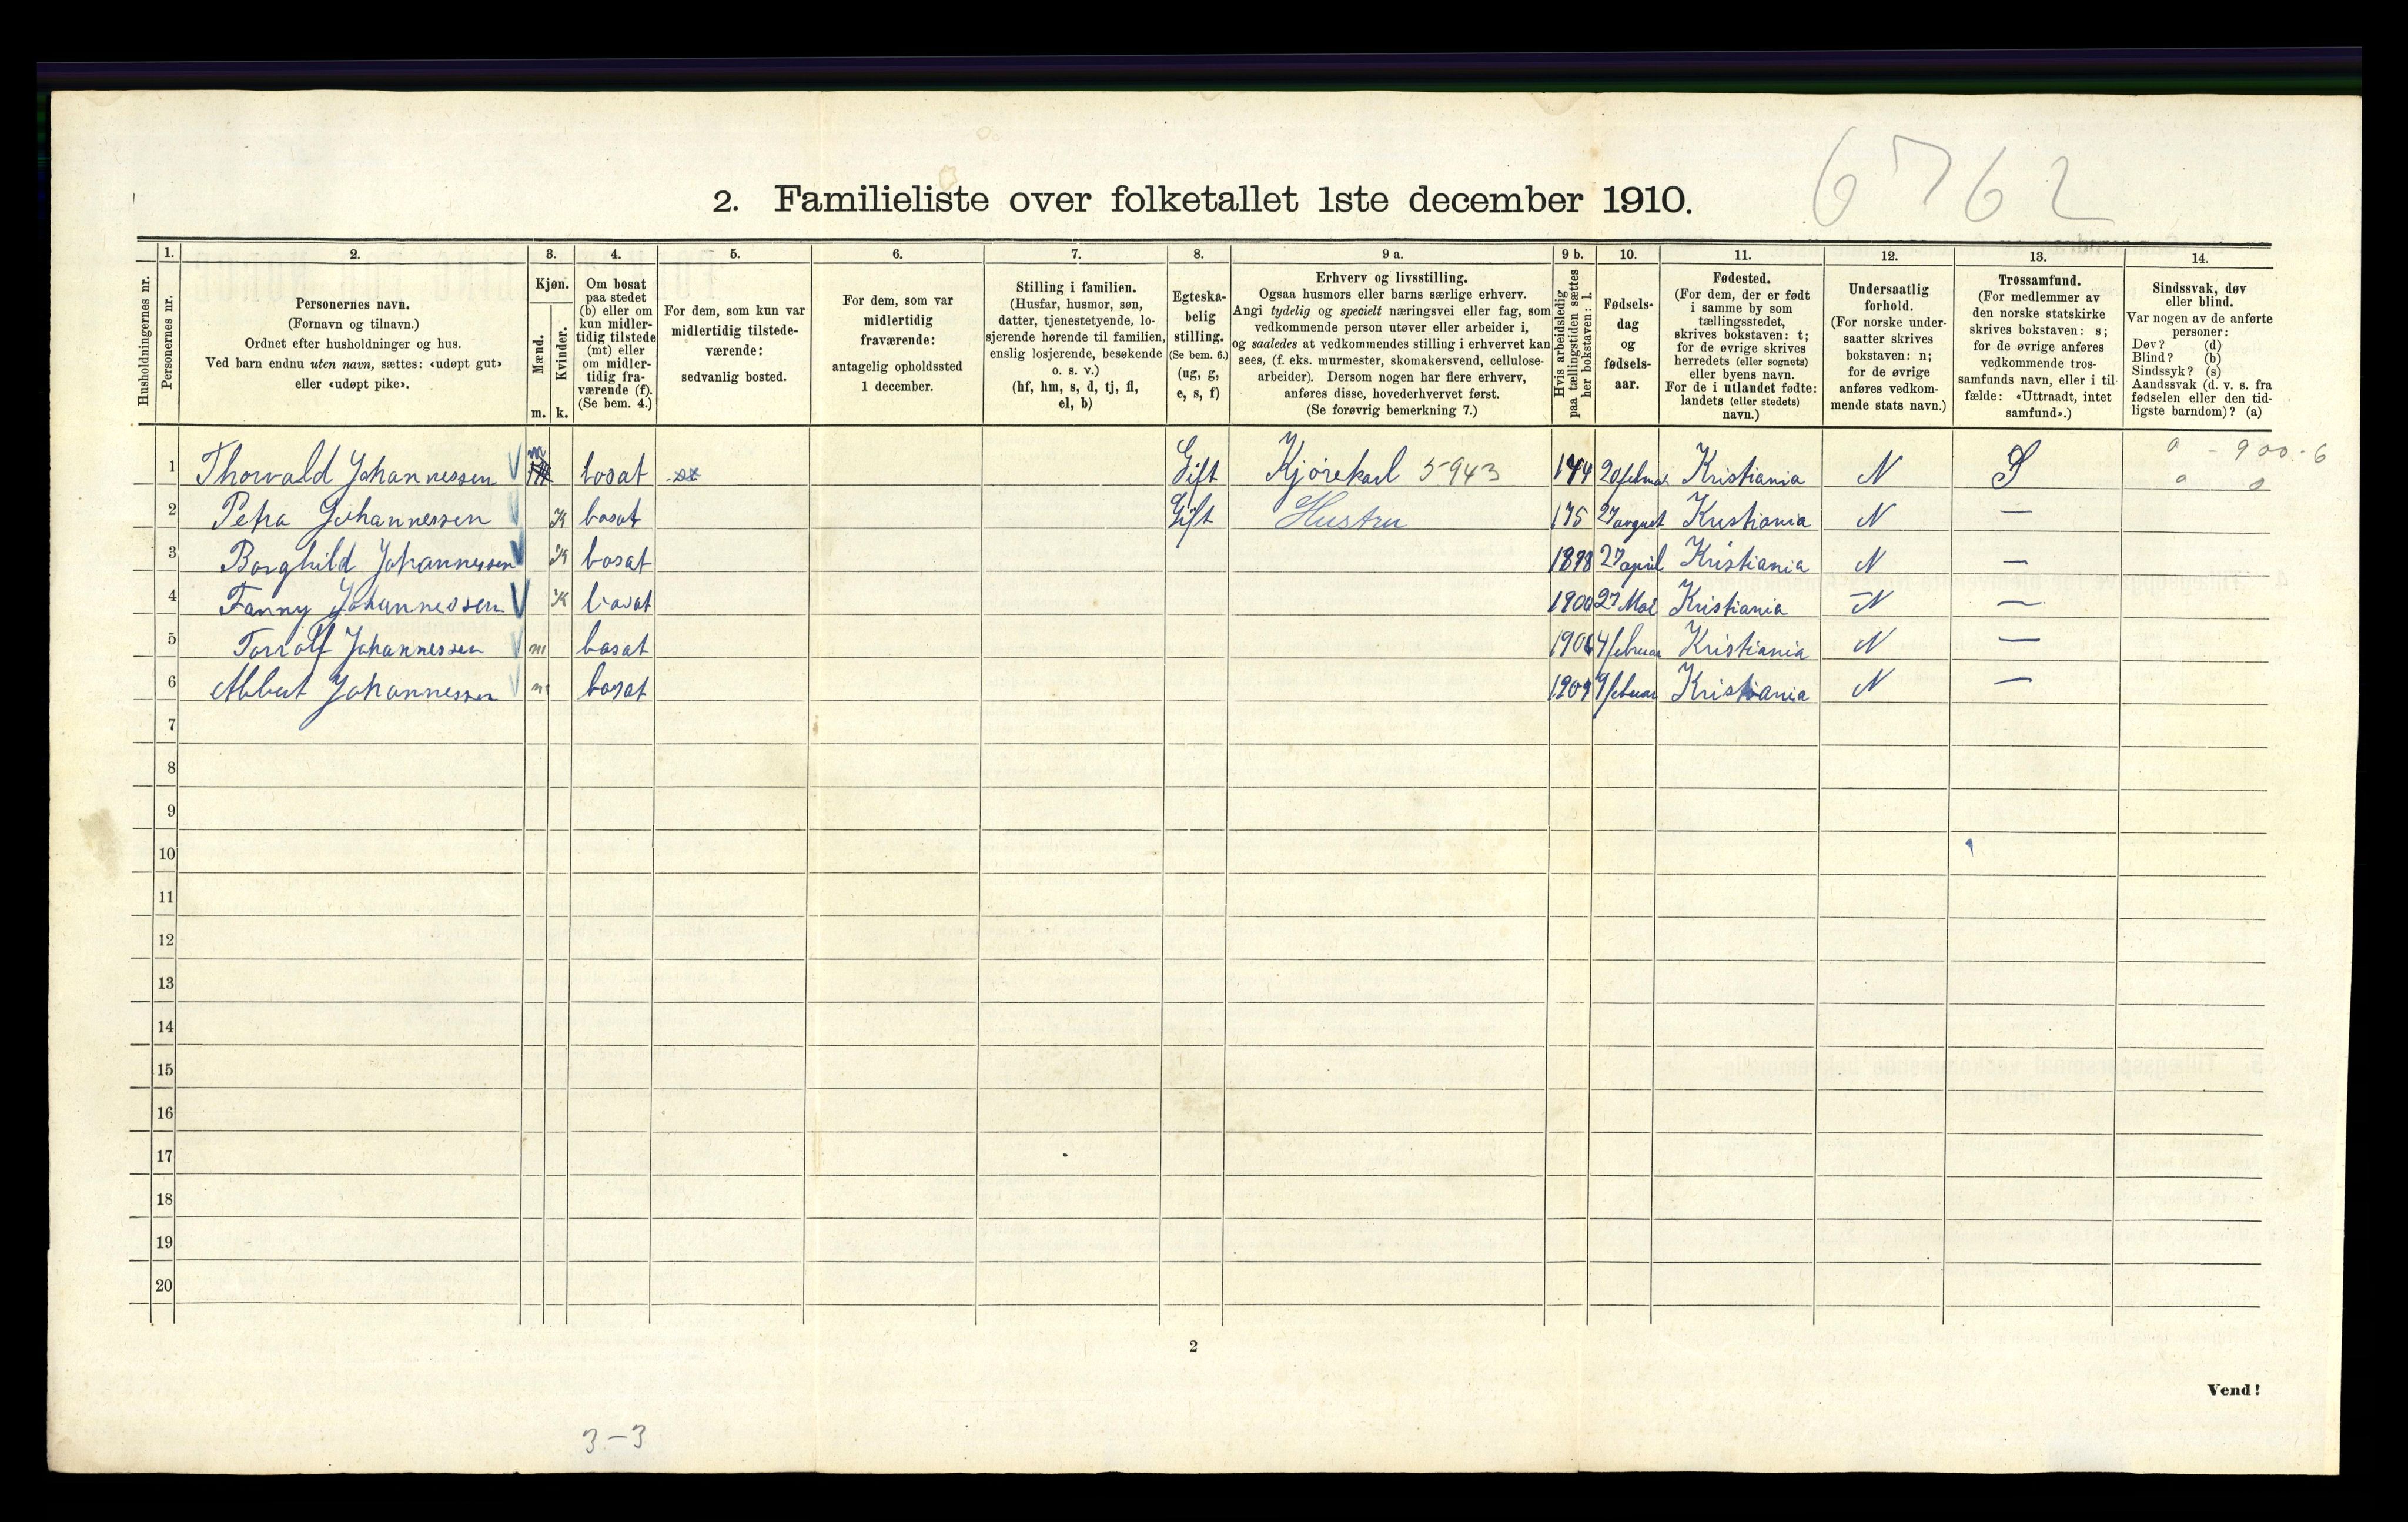 6762
2. Familieliste over folketallet 1ste december 1910.
Husholdningernes nr.
1. 2. 3. 4. 5. 6. 7. 8. 9 a. 9 b. 10. 11. 12. 13. 14.
Personernes nr.
Personernes navn.
(Fornavn og tilnavn.)
Ordnet efter husholdninger og hus.
Ved barn endnu uten navn, sættes: «udøpt gut»
eller «udøpt pike».
Kjøn.
Mænd.
m.
Kvinder.
k.
Om bosat
paa stedet
(b) eller om
kun midler-
tidig tilstede
(mt) eller
om midler-
tidig fra-
værende (f).
(Se bem. 4.)
For dem, som kun var
midlertidig tilstede-
værende:
sedvanlig bosted.
For dem, som var
midlertidig
fraværende:
antagelig opholdssted
1 december.
Stilling i familien.
(Husfar, husmor, søn,
datter, tjenestetyende, lo-
sjerende hørende til familien,
enslig losjerende, besøkende
o. s. v.)
(hf, hm, s, d, tj, fl,
el, b)
Egteska-
belig
stilling.
(Se bem. 6.)
(ug, g,
e, s, f)
Erhverv og livsstilling.
Ogsaa husmors eller barns særlige erhverv.
Angi tydelig og specielt næringsvei eller fag, som
vedkommende person utøver eller arbeider i,
og saaledes at vedkommendes stilling i erhvervet kan
sees, (f. eks. murmester, skomakersvend, cellulose-
arbeider). Dersom nogen har flere erhverv,
anføres disse, hovederhvervet først.
(Se forøvrig bemerkning 7.)
Hvis arbeidsledig
paa tællingstiden sættes
her bokstaven: l.
Fødsels-
dag
og
fødsels-
aar.
Fødested.
(For dem, der er født
i samme by som
tællingsstedet,
skrives bokstaven: t;
for de øvrige skrives
herredets (eller sognets)
eller byens navn.
For de i utlandet fødte:
landets (eller stedets)
navn.)
Undersaatlig
forhold.
(For norske under-
saatter skrives
bokstaven: n;
for de øvrige
anføres vedkom-
mende stats navn.)
Trossamfund.
(For medlemmer av
den norske statskirke
skrives bokstaven: s;
for de øvrige anføres
vedkommende tros-
samfunds navn, eller i til-
fælde: «Uttraadt, intet
samfund».)
Sindssvak, døv
eller blind.
Var nogen av de anførte
personer:
Døv? (d)
Blind? (b)
Sindssyk? (s)
Aandssvak (d. v. s. fra
fødselen eller den tid-
ligste barndom)? (a)
0 - 900-6
1 Thorvald Johannessen m bosat Gift Kjørekarl 5943 20 februar Kristiania N S 0 0
2 Petra Johannessen K bosat Gift Hustru 175 27 august Kristiania N —
3 Borghild Johannessen K bosat 1898 27 april Kristiania N —
4 Fanny Johannessen K bosat 1900 27 Mai Kristiania N —
5 Torrolf Johannessen m bosat 1906 4 februar Kristiania N —
6 Albert Johannessen m bosat 1909 9 februar Kristiania N —
7
8
9
10
11
12
13
14
15
16
17
18
19
20
2
Vend!
3-3